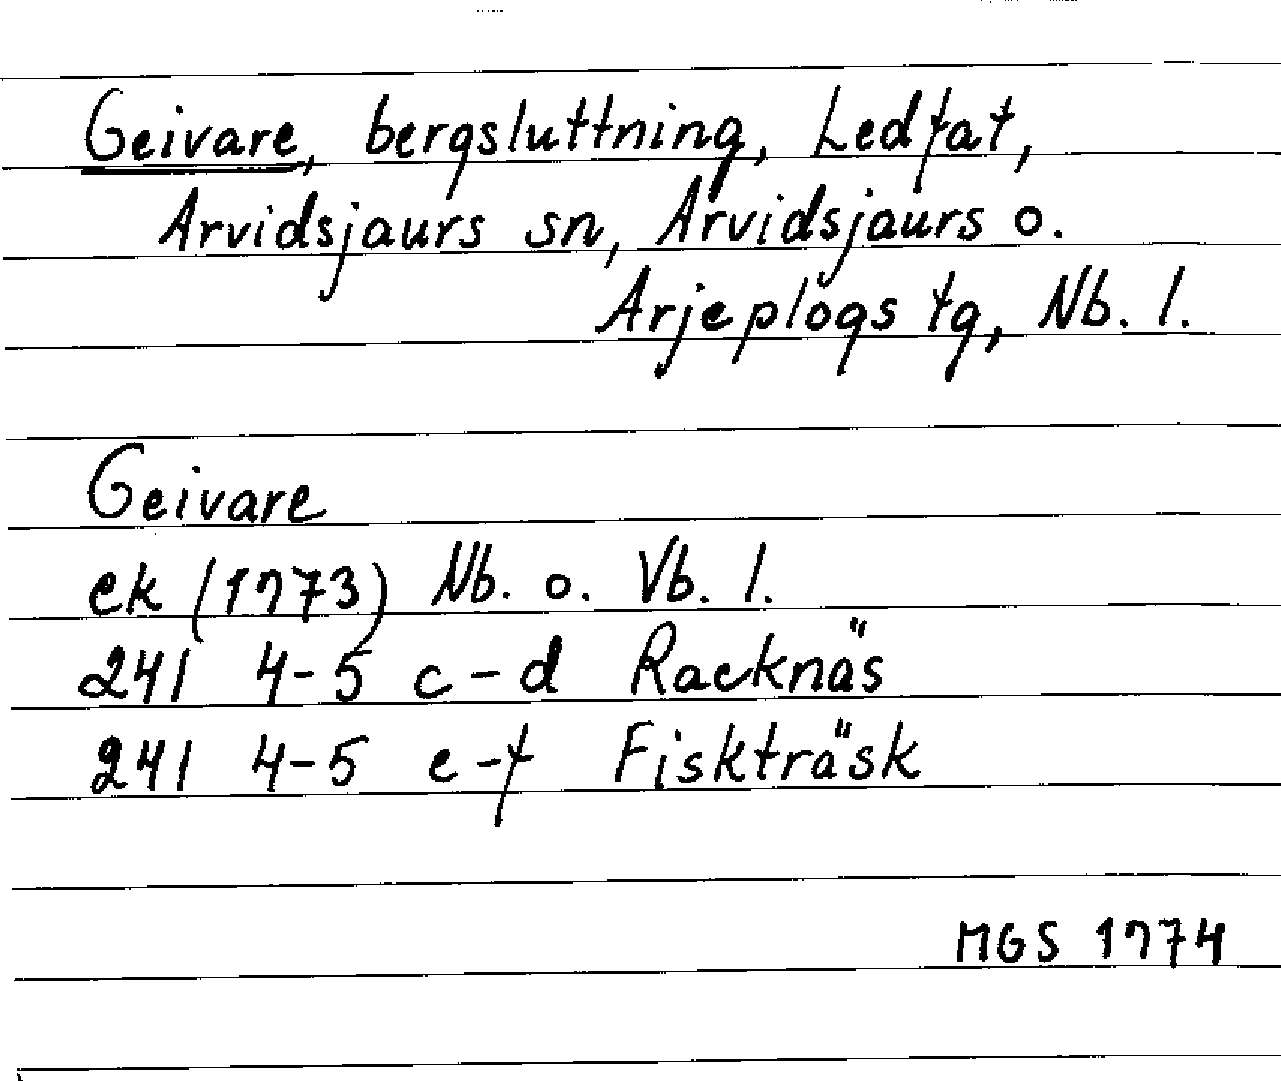 Geivare, bergsluttning, Ledfat,
Arvidsjaurs sn, Arvidsjaurs o.
Arjeplogs tg, Nb. l.
Geivare
ek (1973) Nb. o. Vb. l.
24I 4-5 c-d Racknäs
24I 4-5 e-f Fiskträsk
MGS 1974